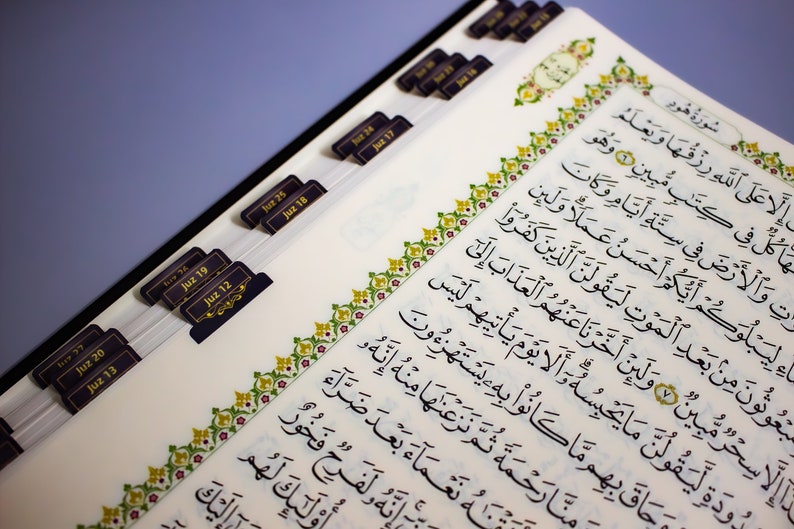 سُورَةُ هُودٍ
إِلَّا عَلَى ٱللَّهِ رِزْقُهَا وَيَعْلَمُ
كُلٌّ فِي كِتَٰبٍ مُّبِينٍ ٦ وَهُوَ
وَٱلْأَرْضَ فِي سِتَّةِ أَيَّامٍ وَكَانَ
لِيَبْلُوَكُمْ أَيُّكُمْ أَحْسَنُ عَمَلًاۗ وَلَئِن
مَّبْعُوثُونَ مِنۢ بَعْدِ ٱلْمَوْتِ لَيَقُولَنَّ ٱلَّذِينَ كَفَرُوٓاْ
إِلَّا سِحْرٌ مُّبِينٌ ٧ وَلَئِنْ أَخَّرْنَا عَنْهُمُ ٱلْعَذَابَ إِلَىٰٓ
لَّيَقُولُنَّ مَا يَحْبِسُهُۥٓۗ أَلَا يَوْمَ يَأْتِيهِمْ لَيْسَ
وَحَاقَ بِهِم مَّا كَانُواْ بِهِۦ يَسْتَهْزِءُونَ
مِنَّا رَحْمَةً ثُمَّ نَزَعْنَٰهَا مِنْهُ إِنَّهُۥ
نَعْمَآءَ بَعْدَ ضَرَّآءَ
إِنَّهُۥ لَفَرِحٌ فَخُورٌ
أُوْلَٰٓئِكَ لَهُم
إِلَيْكَ
Juz 16
Juz 24
Juz 17
Juz 25
Juz 18
Juz 26
Juz 19
Juz 12
Juz 27
Juz 20
Juz 13